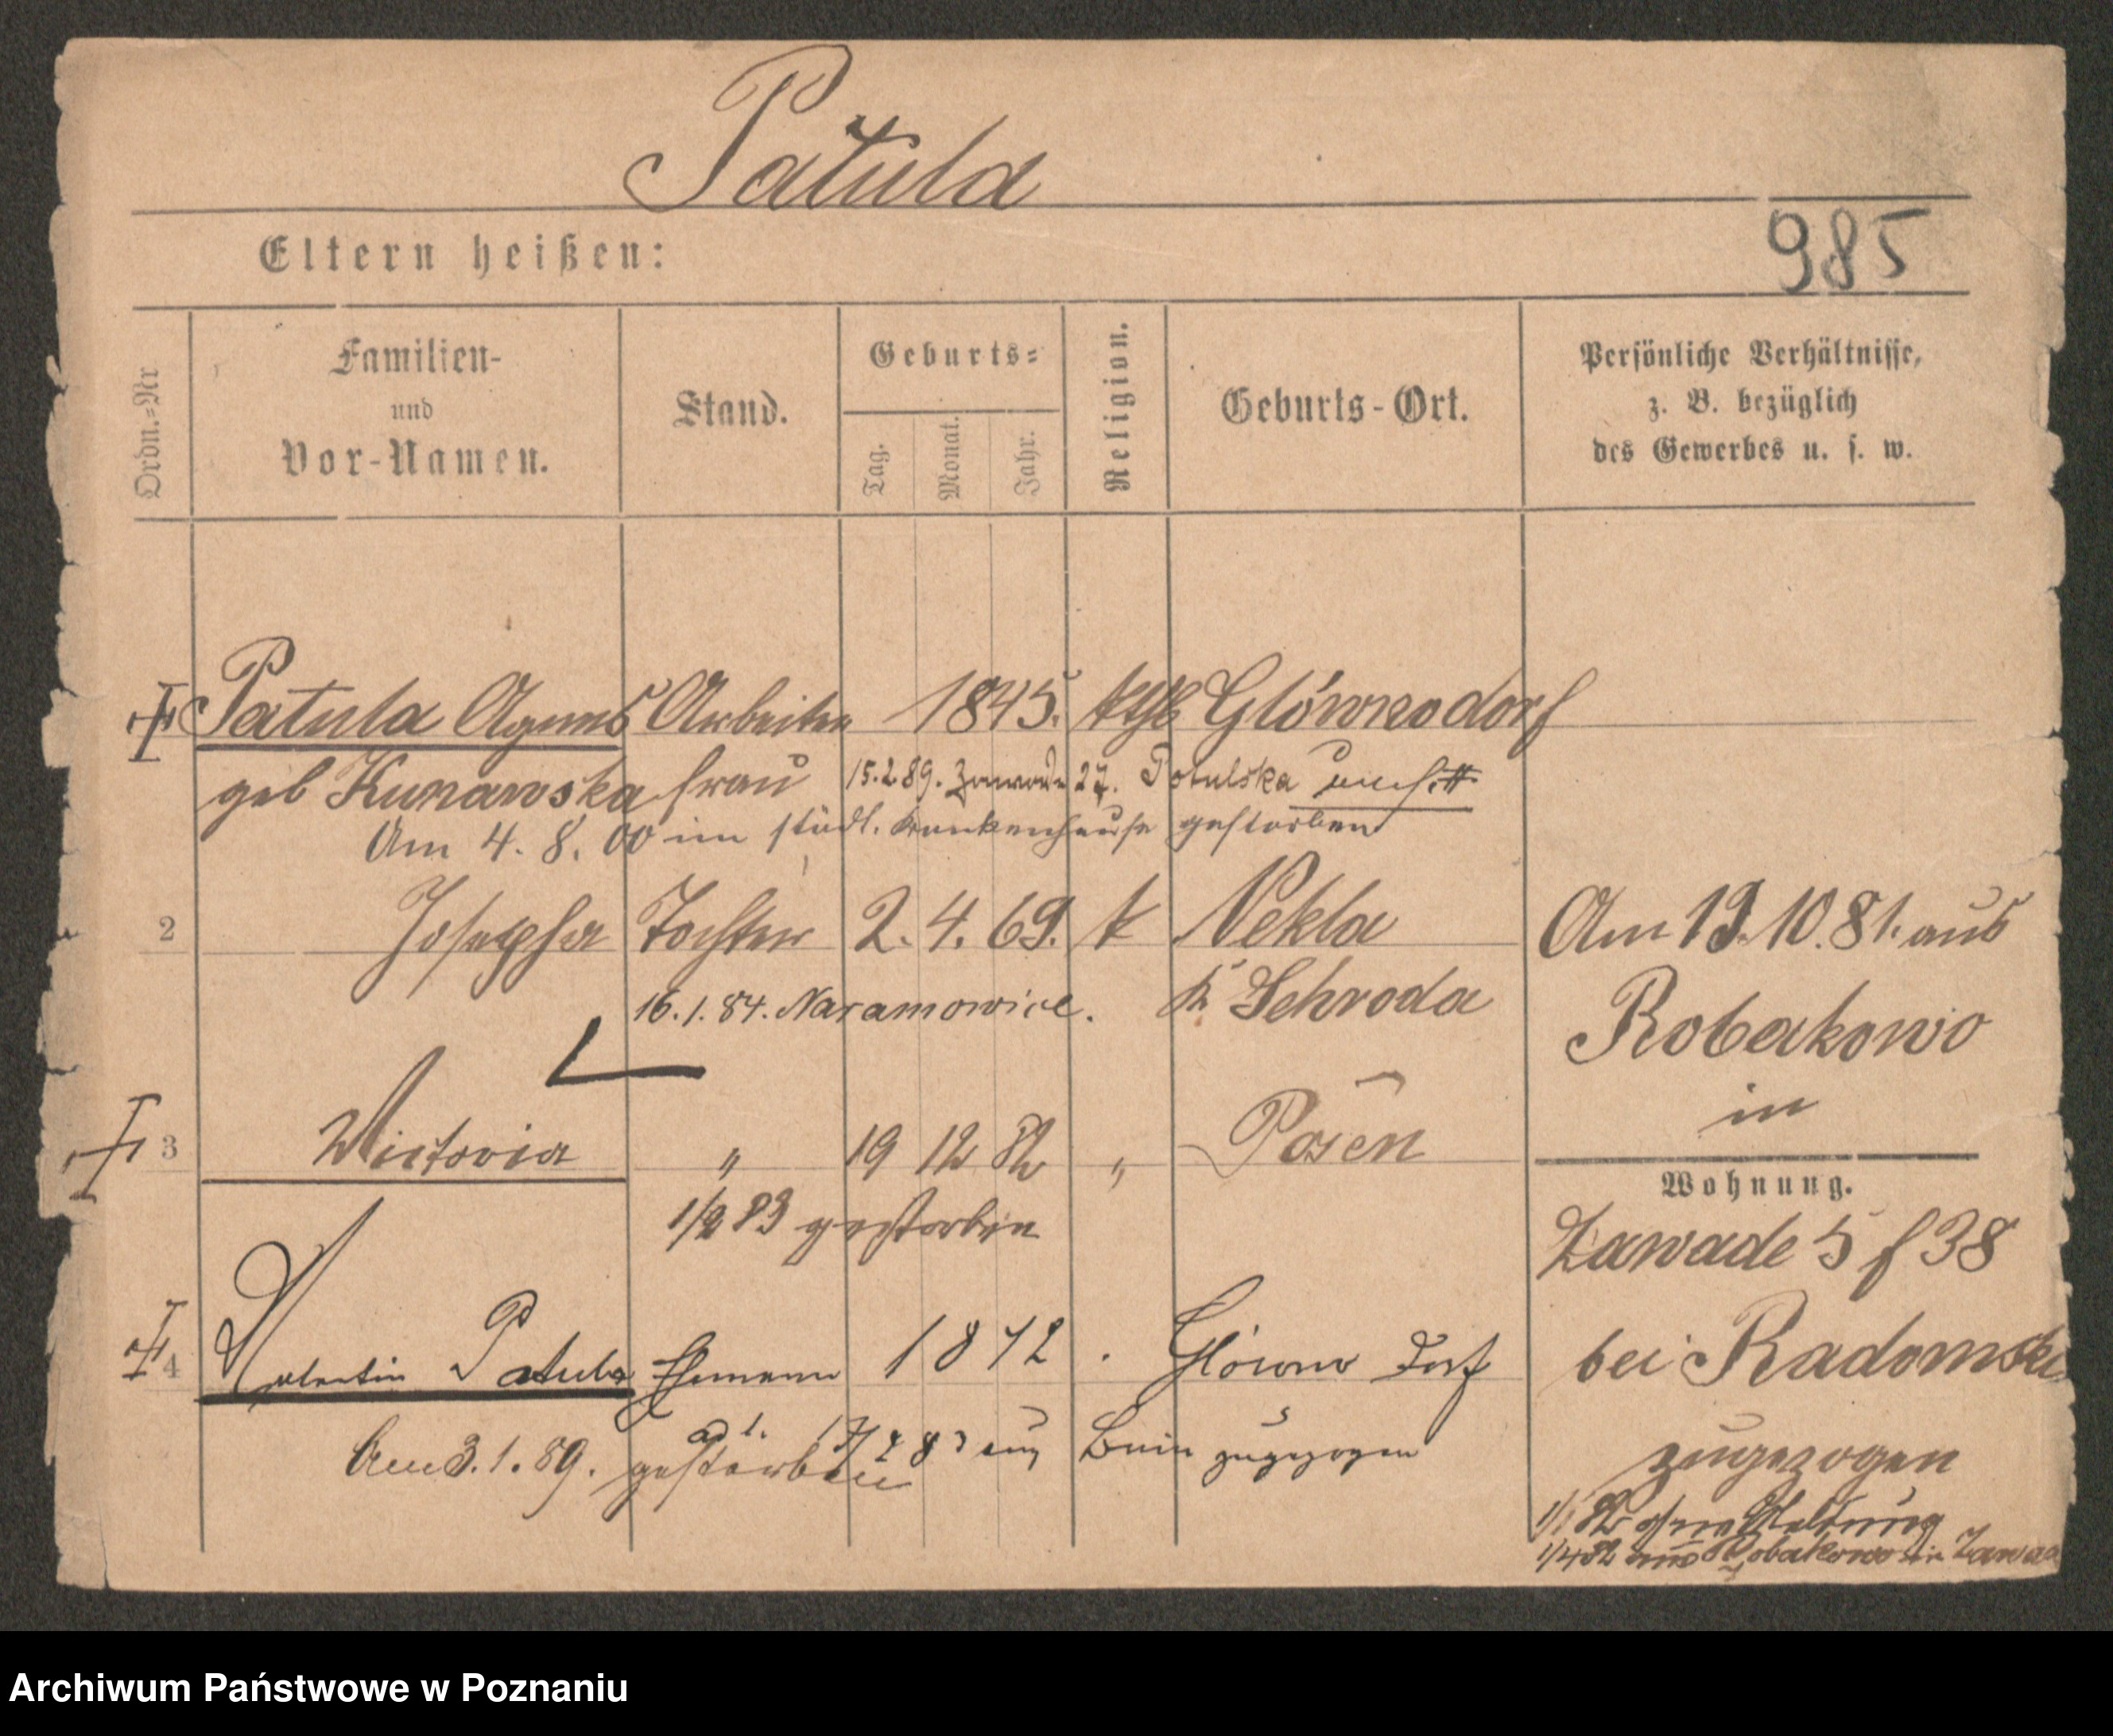 Patula
985
Eltern heißen:
Ordn.=Nr
Familien-
und
Vor-Namen.
Stand.
Geburts=
Tag.
Monat.
Jahr.
Religion.
Geburts-Ort.
Persönliche Verhältnisse,
z. B. bezüglich
des Gewerbes u. s. w.
Patula Agnes Arbeiter 1845. kath Glównodorf
geb Kunawska frau 15.2.89. Zawade 27. Potulska
Am 4. 8. 00 im städt. Krankenhause gestorben
2 Josepha Tochter 2. 4. 69. k Nekla
16. 1. 84. Naramowice. K Schroda
Am 19. 10. 81. aus
Robakowo
in
3 Victoria " 19 12 82 " Posen
1/2 83 gestorben
Wohnung.
Zawade 5 f 38
bei Radomski
zugezogen
1/1 82 ohne Meldung
1/4 82 aus Robakowo in Zawade
4 Valentin Patula Ehemann 1842 . Glówno Dorf
ad 1. 17/4 83 aus Bnin zugezogen
Am 3. 1. 89. gestorben
Archiwum Państwowe w Poznaniu